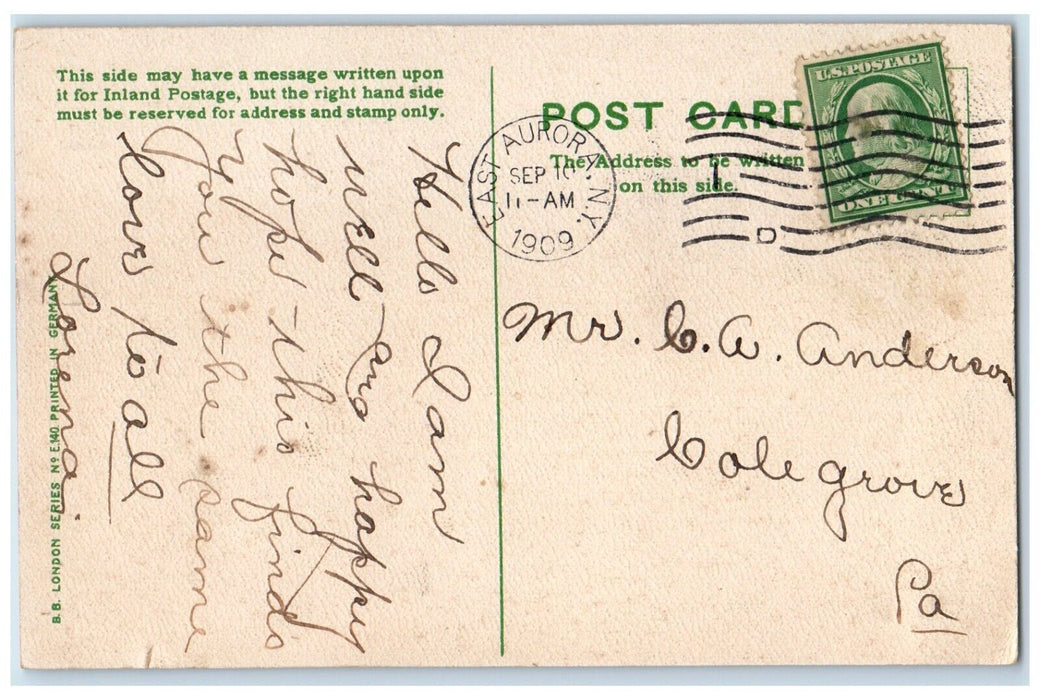 This side may have a message written upon
it for Inland Postage, but the right hand side
must be reserved for address and stamp only.
POST CARD
The Address to be written
on this side.
EAST AURORA, N.Y.
SEP 10
11-AM
1909
U.S. POSTAGE
ONE CENT
Hello I am
well and happy
hope this finds
you the same
love to all
Lorena
Mr. C. A. Anderson
Colegrove
Pa
B.B. LONDON SERIES No E.140 PRINTED IN GERMANY